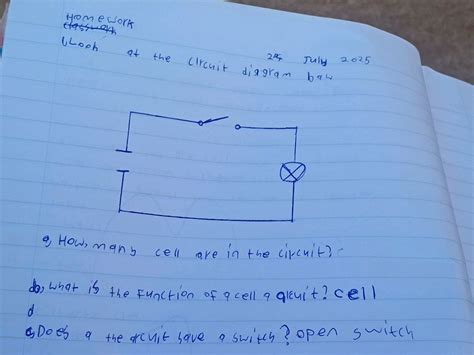 Homework
classwork
2nd July 2025
1, Look at the circuit diagram baw
a, How, many cell are in the circuit?
b, what is the function of a cell a qrcuit? cell
d
c, Does a the arcuit have a switch? open switch